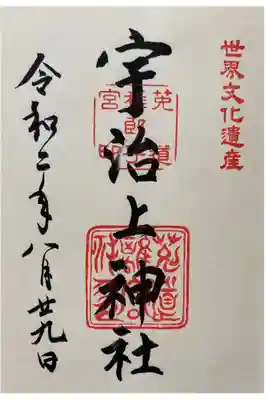 世界文化遺産
宇治上神社
令和二年八月廿九日